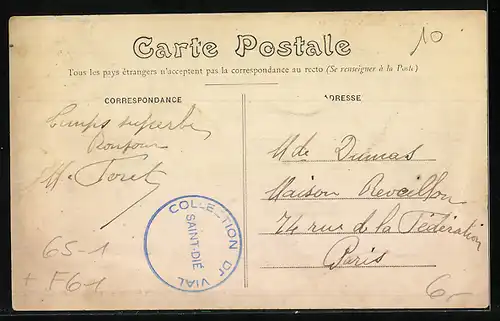 Carte Postale
10
Tous les pays étrangers n'acceptent pas la correspondance au recto (Se renseigner à la Poste)
CORRESPONDANCE
ADRESSE
Temps superbe
Bonjour
M. Foret
Mde Dumas
Maison Reveillon
74 rue de la Fédération
Paris
COLLECTION Dr VIAL
SAINT-DIÉ
6S-1
+ F61
6-